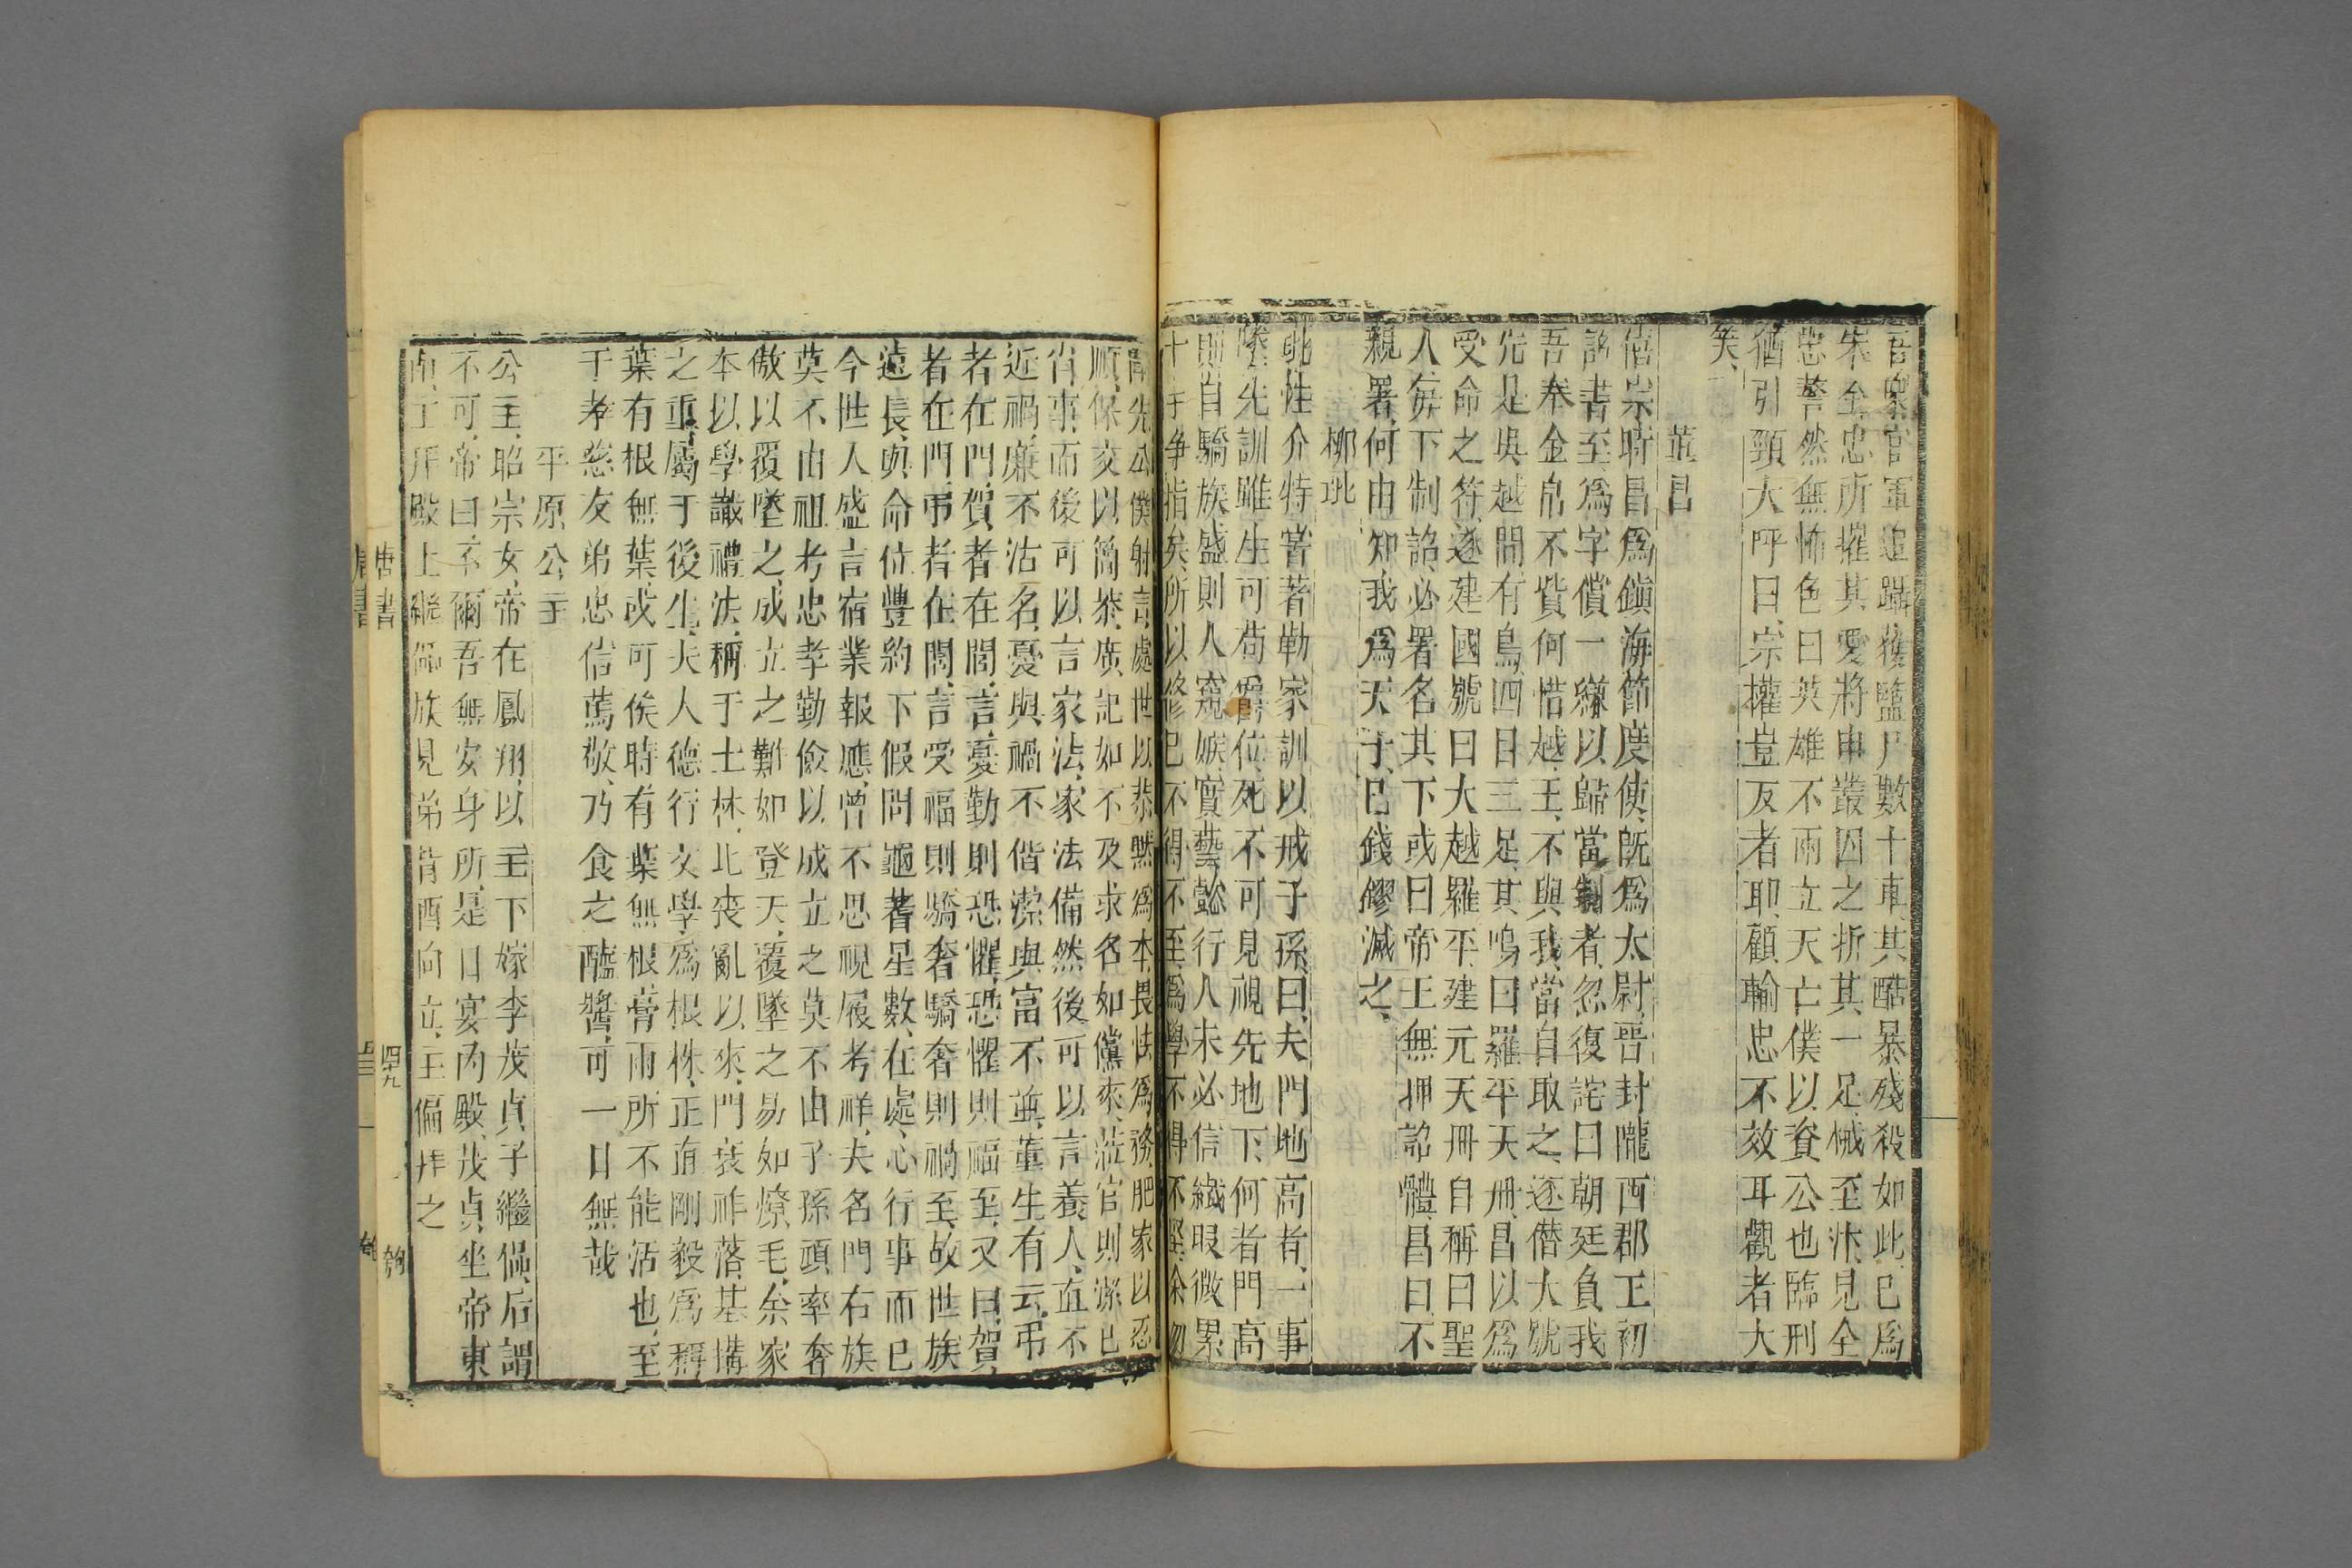 吾衆官軍追躡獲鹽尸數十車其酷暴殘殺如此已爲
朱全忠所摧其愛將申叢囚之折其一足械至汴見全
忠謷然無怖色曰英雄不兩立天亡僕以資公也臨刑
猶引頸大呼曰宗權豈反者耶顧輸忠不效耳觀者大
笑
董昌
僖宗時昌爲鎮海節度使旣爲太尉晉封隴西郡王初
詔書至爲字償一縑以歸當制者忽復詫曰朝廷負我
吾奉金帛不貲何惜越王不與我當自取之遂僭大號
先是吳越間有鳥四目三足其鳴曰羅平天冊昌以爲
受命之符遂建國號曰大越羅平建元天冊自稱曰聖
人每下制詔必署名其下或曰帝王無押詔體昌曰不
親署何由知我爲天子已錢鏐滅之
柳玭
玭性介特嘗著勒家訓以戒子孫曰夫門地高者一事
墜先訓雖生可苟爵位死不可見祖先地下何者門高
則自驕族盛則人窺嫉實藝懿行人未必信纖瑕微累
十手爭指矣所以修己不得不至爲學不得不堅余幼
聞先公僕射言處世以恭默爲本畏怯爲務肥家以忍
順保交以簡恭廣記如不及求名如儻來蒞官則潔己
省事而後可以言家法家法備然後可以言養人直不
近禍廉不沽名憂與禍不偕潔與富不並董生有云弔
者在門賀者在閭言憂勤則恐懼恐懼則福至又曰賀
者在門弔者在閭言受福則驕奢驕奢則禍至故世族
遠長與命位豐約不假問龜蓍星數在處心行事而已
今世人盛言宿業報應曾不思視履考祥夫名門右族
莫不由祖考忠孝勤儉以成立之莫不由子孫頑率奢
傲以覆墜之成立之難如登天覆墜之易如燎毛余家
本以學識禮法稱于士林比喪亂以來門衰祚落基搆
之重屬于後生夫人德行文學爲根株正直剛毅爲稱
葉有根無葉或可俟時有葉無根膏雨所不能活也至
于孝慈友弟忠信篤敬乃食之醯醬可一日無哉
平原公主
公主昭宗女帝在鳳翔以主下嫁李茂貞子繼偘后謂
不可帝曰不爾吾無安身所是日宴內殿茂貞坐帝東
南主拜殿上繼偘族見弟皆西向立主偏拜之
唐書
四九